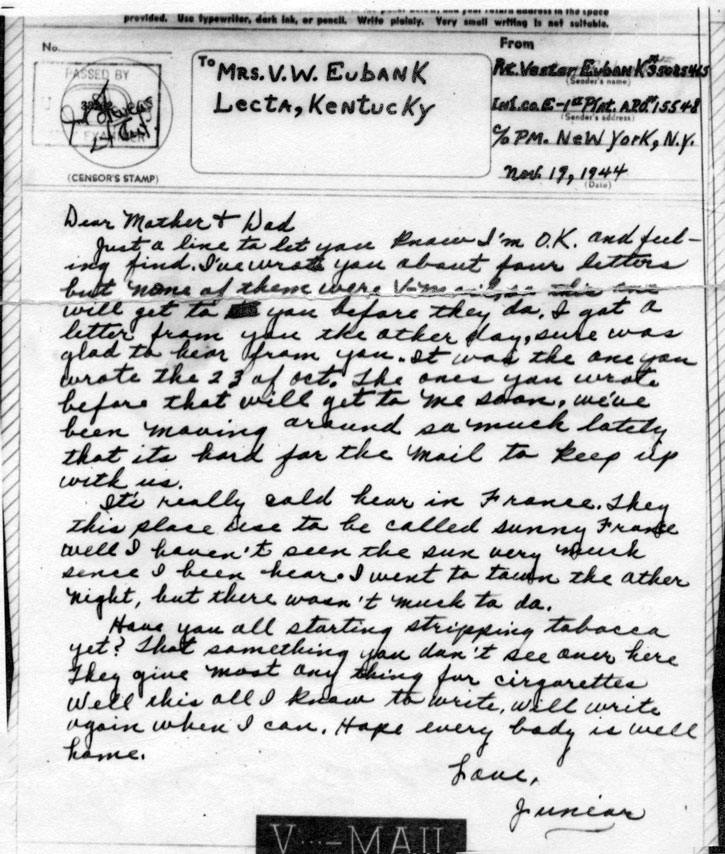 provided. Use typewriter, dark ink, or pencil. Write plainly. Very small writing is not suitable.
No.
From
PASSED BY
EXAMINER
(CENSOR'S STAMP)
To MRS. V. W. EUBANK
LECTA, KENTUCKY
Pvt. Vester Eubank 35085465
(Sender's name)
Inf. co. E-1st Plat. A.P.O. 15548
(Sender's address)
c/o PM. New York, N.Y.
Nov. 19, 1944
(Date)
Dear Mother & Dad
Just a line to let you know I'm O.K. and feel-
ing find. I've wrote you about four letters
but none of them were V-mail, so this one
will get to you before they do. I got a
letter from you the other day, sure was
glad to hear from you. It was the one you
wrote the 23 of Oct. The ones you wrote
before that will get to me soon, we've
been moving around so much lately
that its hard for the mail to keep up
with us.
It's really cold hear in France. They
this place use to be called sunny France
well I haven't seen the sun very much
sence I been hear. I went to town the other
night, but there wasn't much to do.
Have you all starting stripping tobacca
yet? That something you don't see over here
They give most any thing for cirgarettes
Well this all I know to write, will write
again when I can. Hope every body is well
home.
Love,
Junior
V···—MAIL